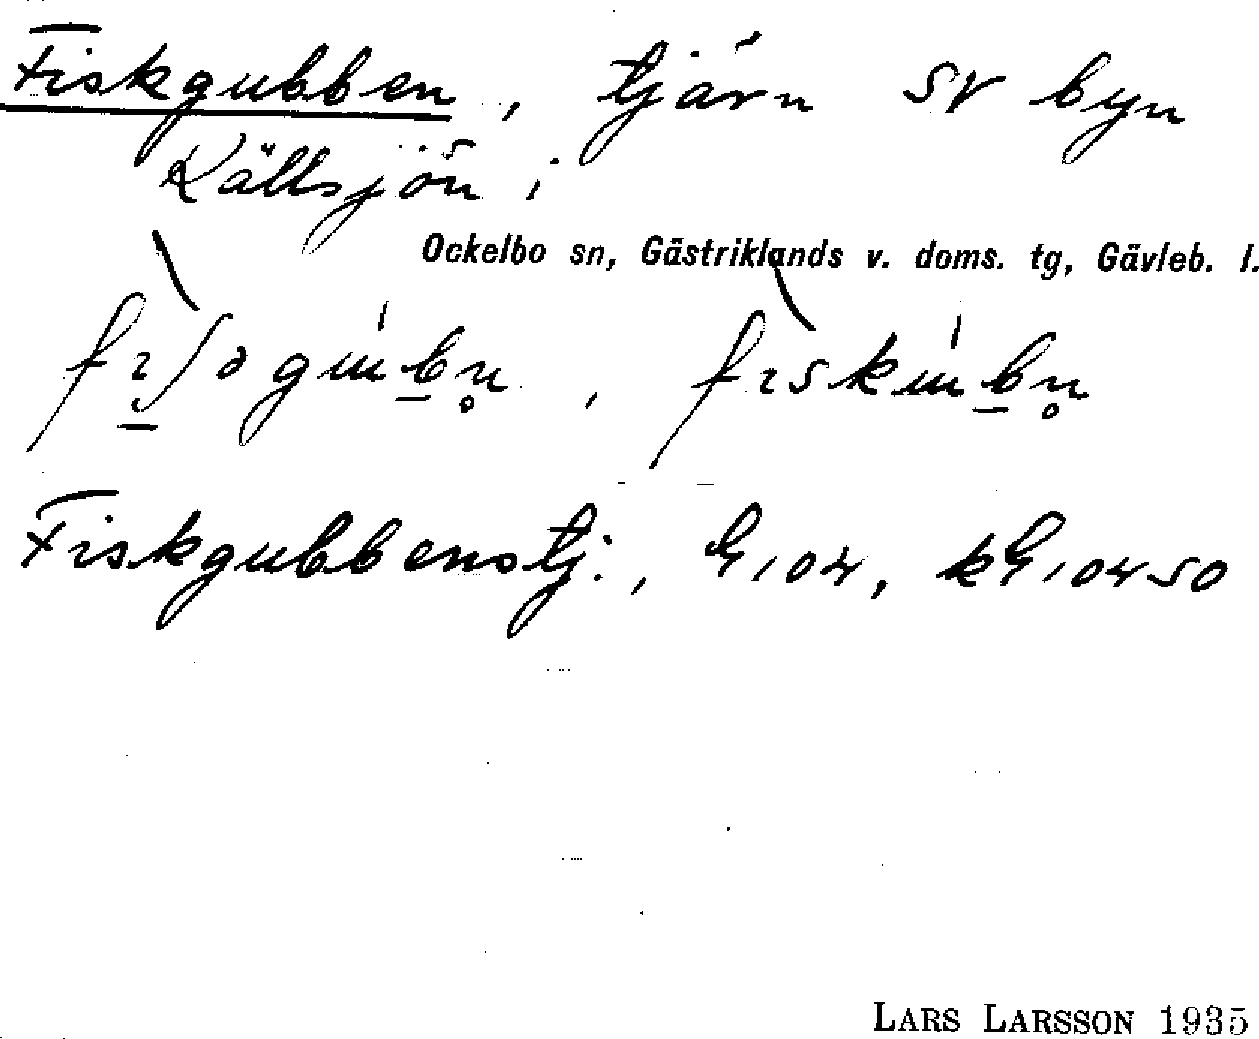 Fiskgubben, tjärn SV byn
Källsjön i
Ockelbo sn, Gästriklands v. doms. tg, Gävleb. l.
Fiskgubbenstj., G 104, kG 10450
LARS LARSSON 1935